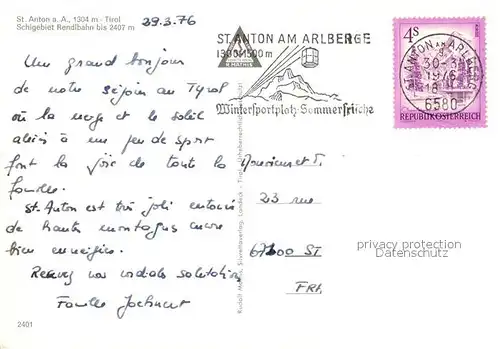 St. Anton a. A., 1304 m - Tirol
Schigebiet Rendlbahn bis 2407 m
29.3.76
Un grand bonjour
de notre séjour au Tyrol
où la neige et le soleil
aliés à un peu de sport
font la joie de toute la
famille.
St. Anton est très joli entouré
de haute montagnes encore
bien enneigées.
Recevez nos cordiales salutations
Famille
2401
ST. ANTON AM ARLBERG
1300-1500 m
Wintersportplatz-Sommerfrische
R. MATHIS
ST. ANTON AM ARLBERG
30-3
1976
18
6580
4S
REPUBLIK ÖSTERREICH
Monsieur et
23 rue
67100 ST
FR
privacy protection
Datenschutz
Rudolf Mathis, Landeck - Tirol